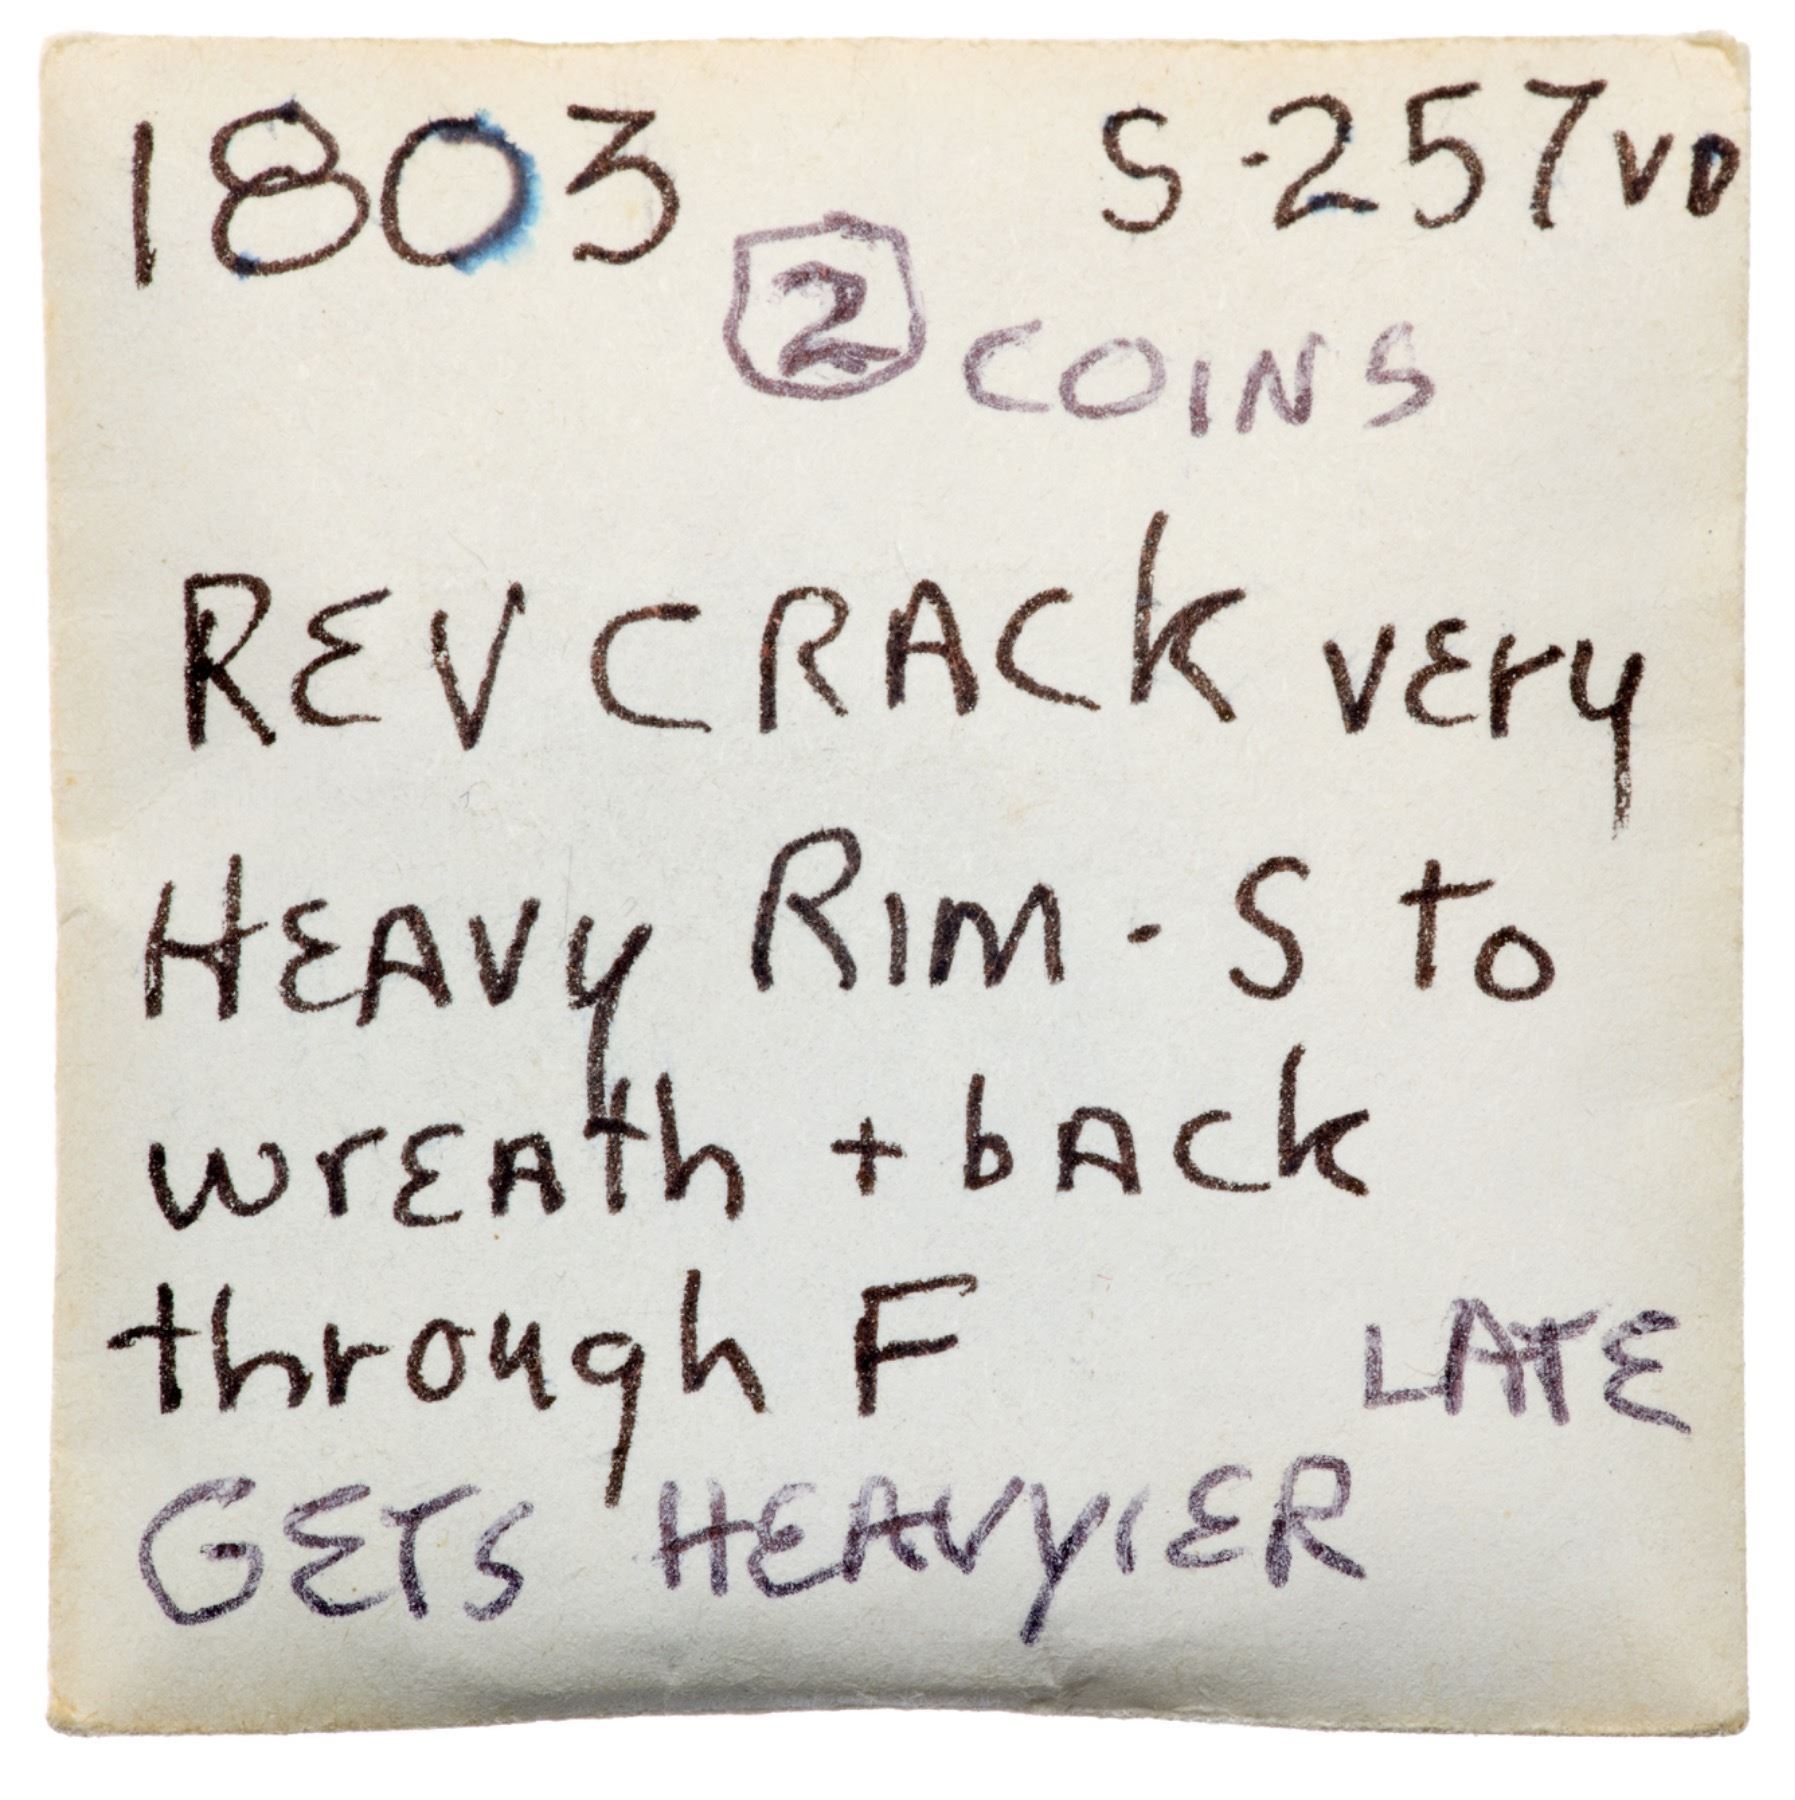 1803 S-257VD
2 COINS
REV CRACK very
HEAVY RIM - S to
wreath + back
through F LATE
GETS HEAVYIER